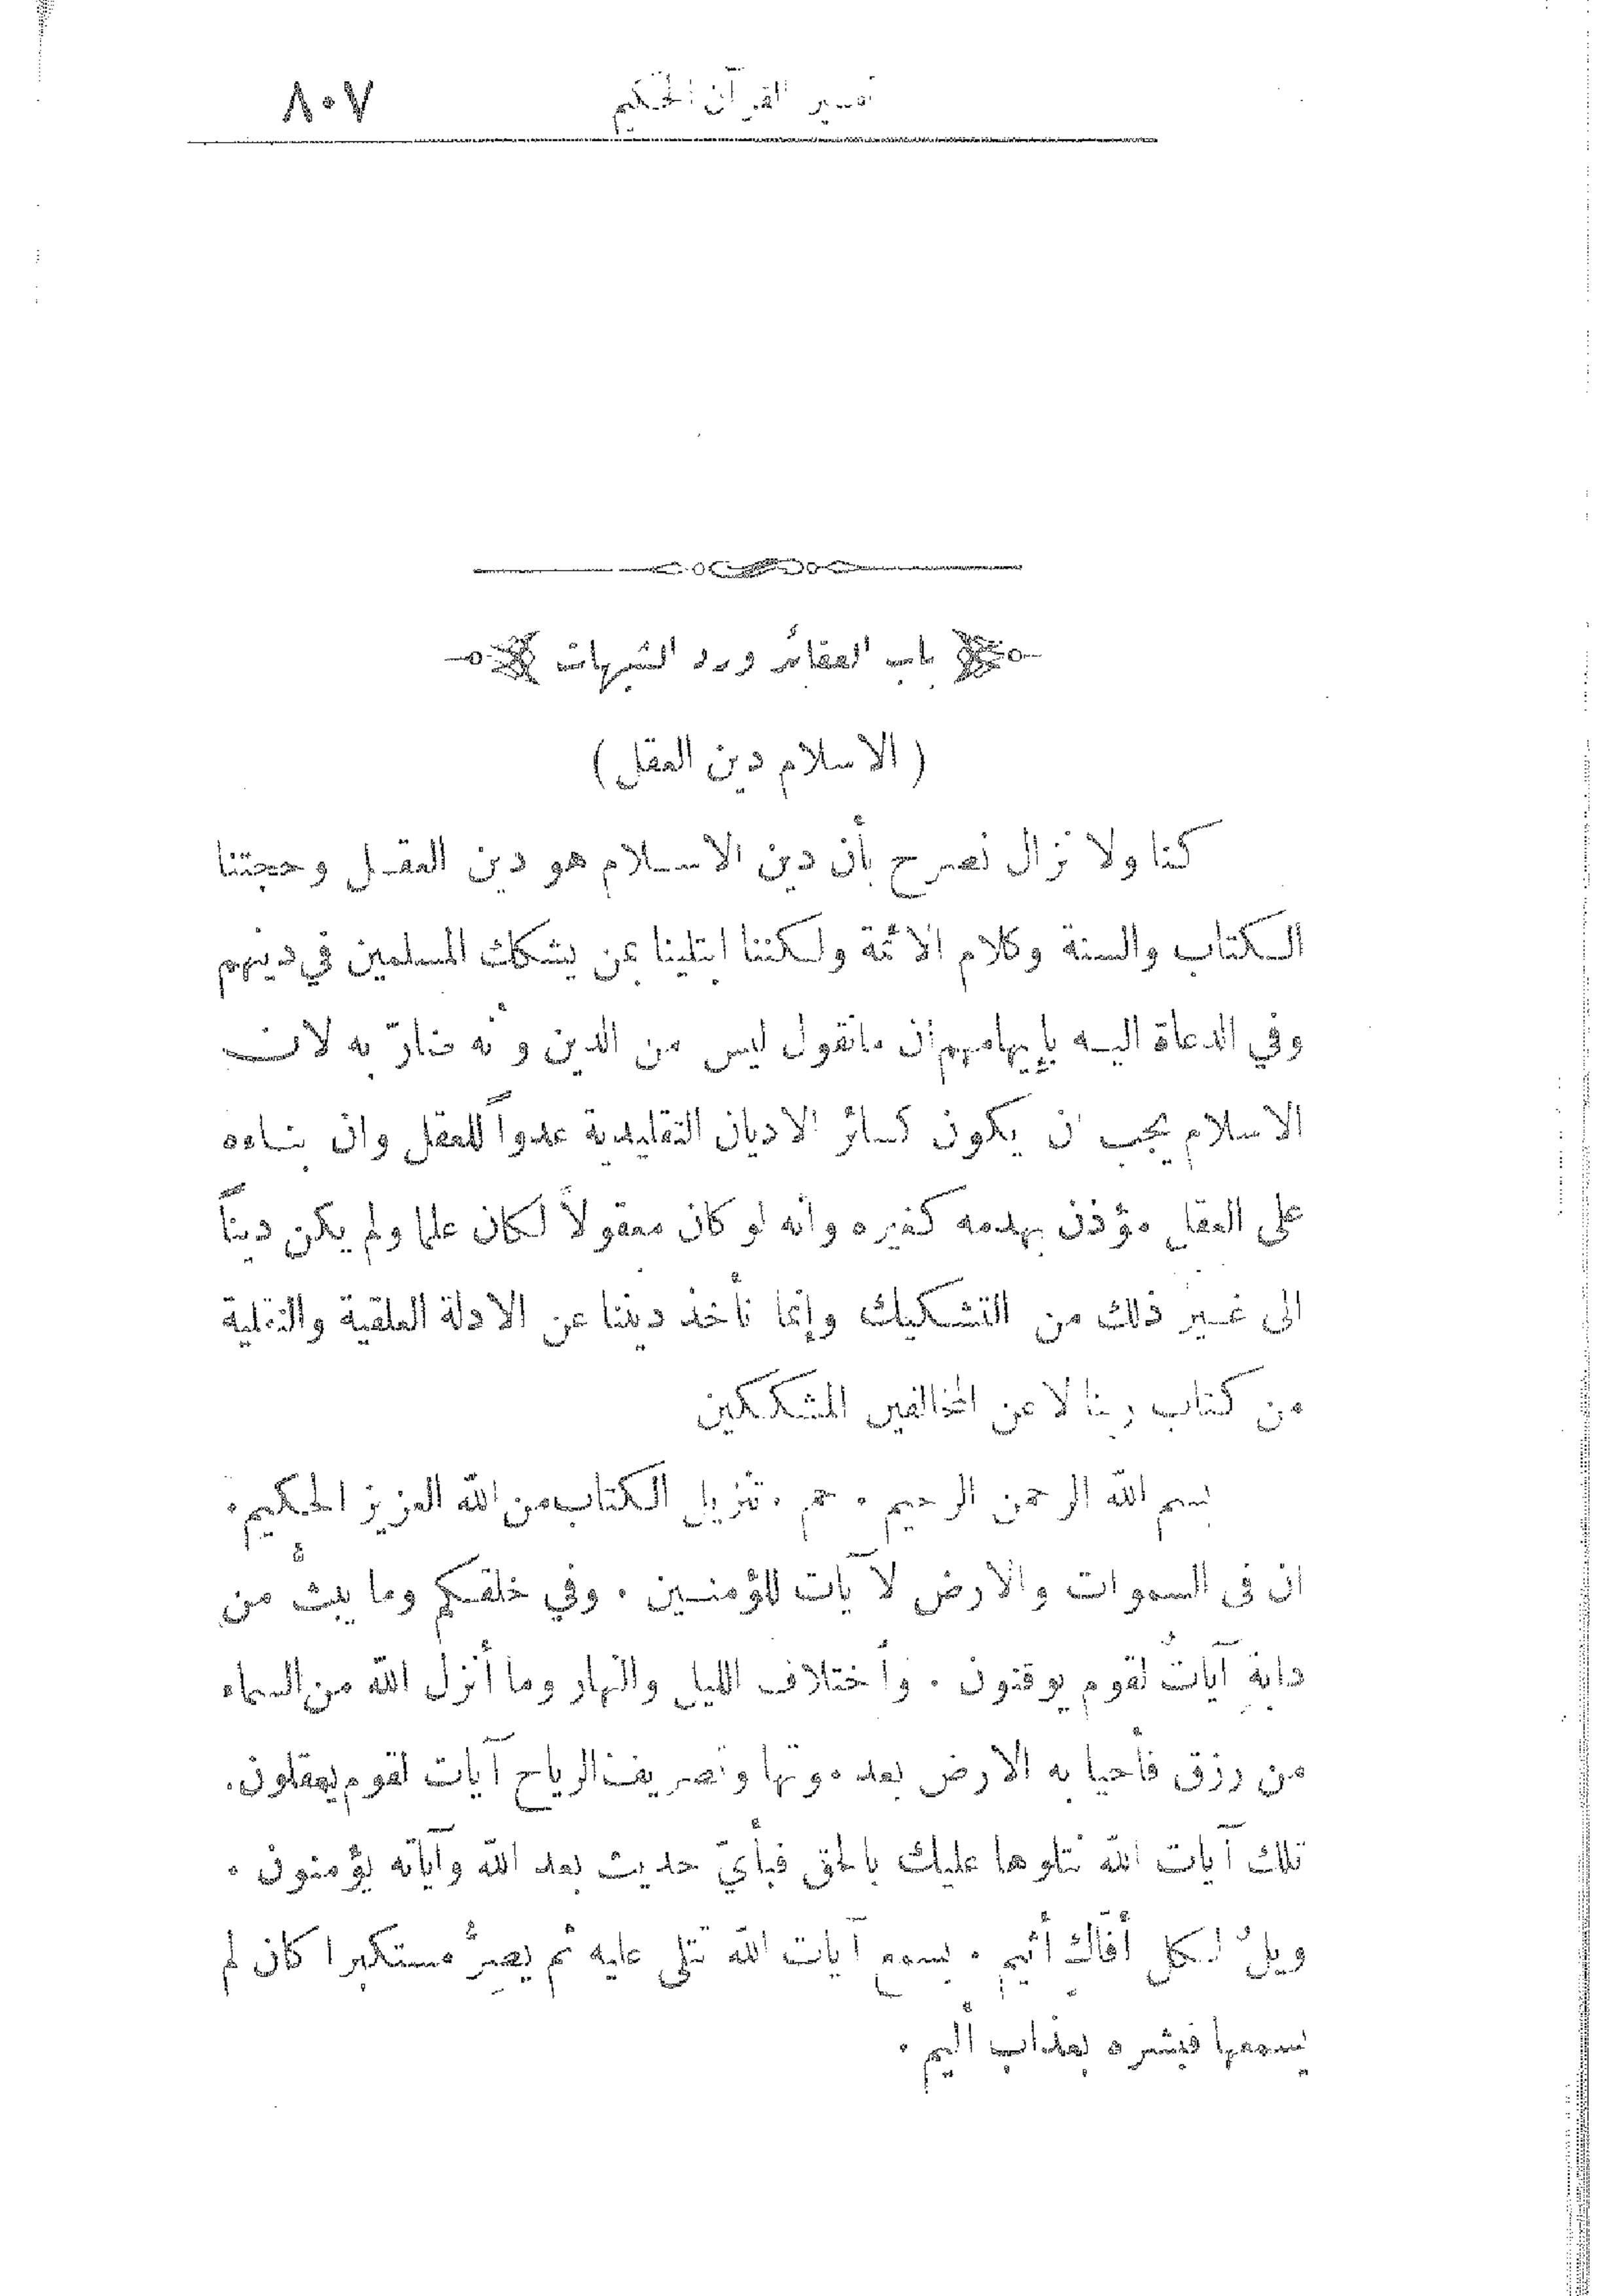 تفسير القرآن الحكيم ٨٠٧
باب العقائد ورد الشبهات
( الاسلام دين العقل )
كنا ولا نزال نصرح بأن دين الاسلام هو دين العقل وحجتنا
الكتاب والسنة وكلام الائمة ولكننا ابتلينا بمن يشكك المسلمين في دينهم
وفي الدعاة اليه بإيهامهم أن مانقول ليس من الدين وأنه ضارّ به لان
الاسلام يجب ان يكون كسائر الاديان التقليدية عدواً للعقل وان بناءه
على العقل مؤذن بهدمه كغيره وانه لو كان معقولاً لكان علما ولم يكن ديناً
الى غير ذلك من التشكيك وإنما نأخذ ديننا عن الادلة العلقية والنقلية
من كتاب ربنا لا عن المخالفين المشككين
بسم الله الرحمن الرحيم . حم . تنزيل الكتاب من الله العزيز الحكيم .
ان فى السموات والارض لآيات للمؤمنين . وفي خلقكم وما يبثُّ من
دابةٍ آياتٌ لقوم يوقنون . وأختلاف الليل والنهار وما أنزل الله من السماء
من رزق فأحيا به الارض بعد موتها وتصريف الرياح آيات لقوم يعقلون .
تلك آيات الله نتلوها عليك بالحق فبأيّ حديث بعد الله وآياته يؤمنون .
ويلٌ لكل أفّاكٍ أثيم . يسمع آيات الله تتلى عليه ثم يصِرُّ مستكبرا كان لم
يسمعها فبشره بعذاب أليم .